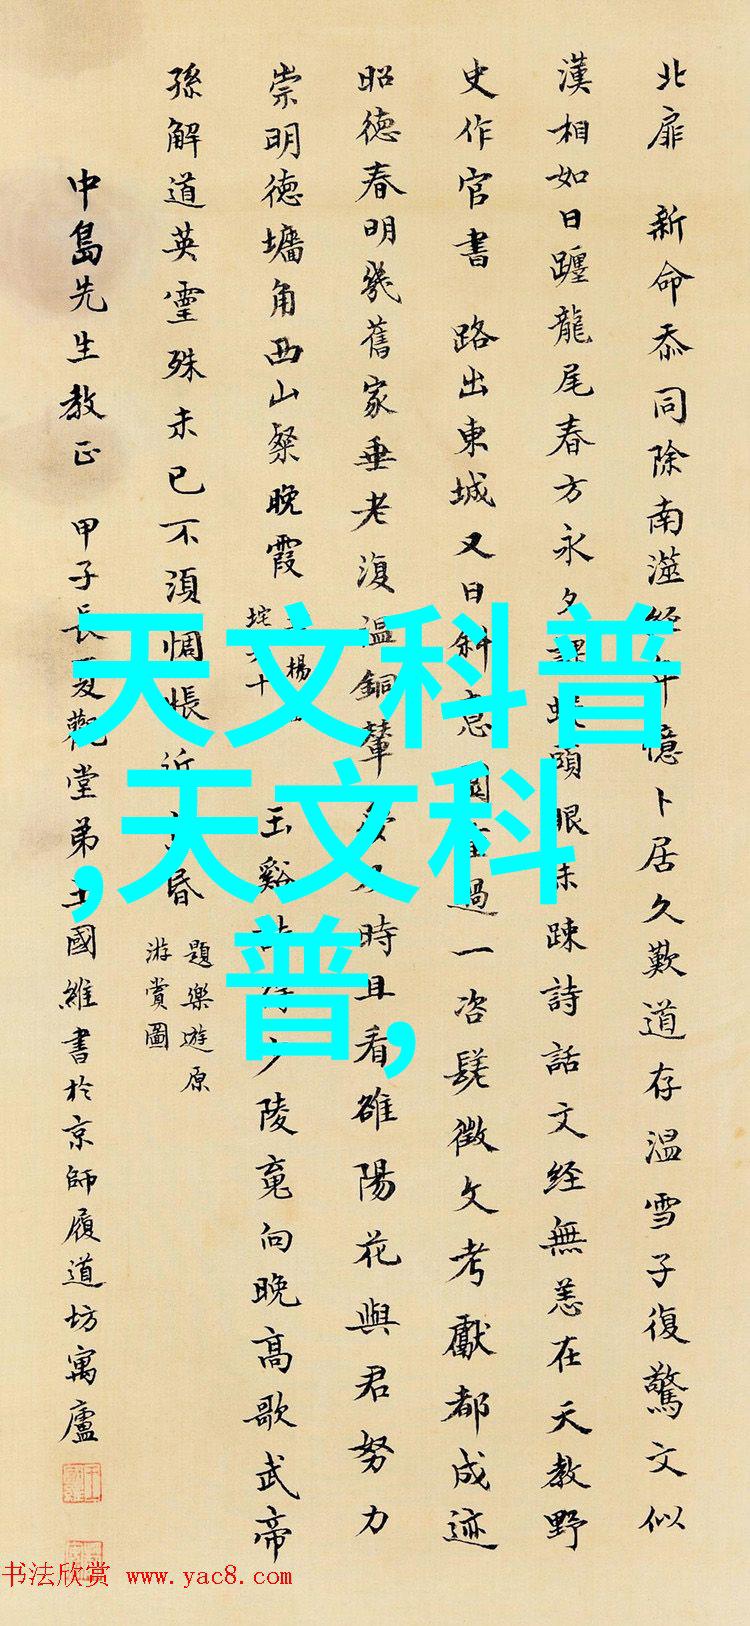 北扉 新命忝同除南澨經年憶卜居久歎道存温雪子復驚文似
漢相如日躔龍尾春方永夕課蛾頭眼未疎詩話文経無恙在天教野
史作官書 路出東城又日斜意園重過一咨嗟徵文考獻都成迹
昭徳春明幾舊家垂老復温銅輦夢及時且看雒陽花與君努力
崇明徳墻角西山粲晚霞
玉谿詩得少陵竟向晚高歌武帝
孫解道英霊殊未已不須惆悵近黄昏
題樂遊原
游賞圖
中島先生教正 甲子長夏觀堂弟王國維書於京師履道坊寓廬
天文科普
,天文科
普,
书法欣赏 www.yac8.com